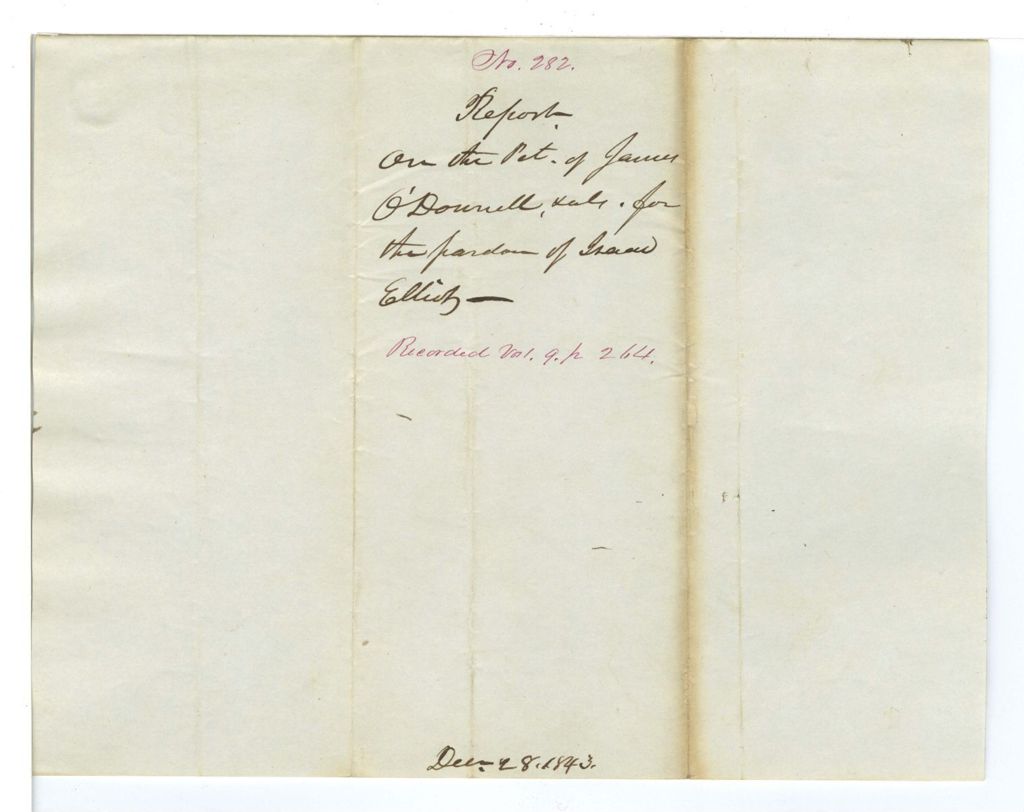 No. 282.
Report
On the Pet. of James
O'Donnell, & als. for
the pardon of Isaac
Elliot—
Recorded Vol. 9. p 264.
Decr 28. 1843.